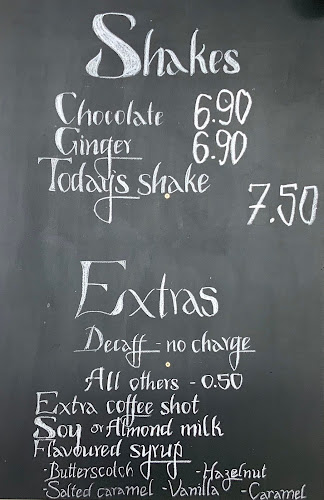 Shakes
Chocolate 6.90
Ginger 6.90
Today's shake 7.50
Extras
Decaff - no charge
All others - 0.50
Extra coffee shot
Soy or Almond milk
Flavoured syrup
- Butterscotch - Hazelnut
- Salted caramel - Vanilla - Caramel